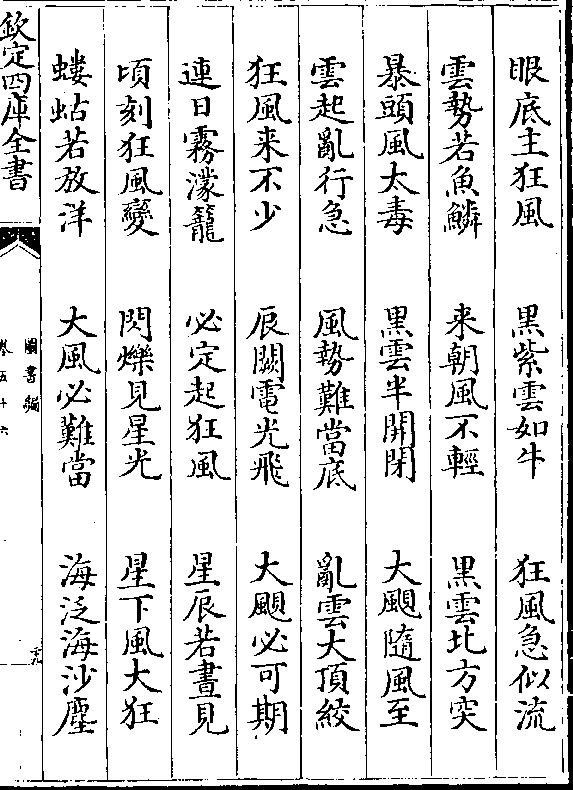 眼底主狂風 黑紫雲如牛 狂風急似流
雲勢若魚鱗 来朝風不輕 黑雲北方突
暴頭風太毒 黑雲半開閉 大颶隨風至
雲起亂行急 風勢難當底 亂雲大頂絞
狂風来不少 辰闕電光飛 大颶必可期
連日霧濛籠 必定起狂風 星辰若晝見
頃刻狂風變 閃爍見星光 星下風大狂
螻蛄若放洋 大風必難當 海泛海沙塵
欽定四庫全書
圖書編
卷五十六